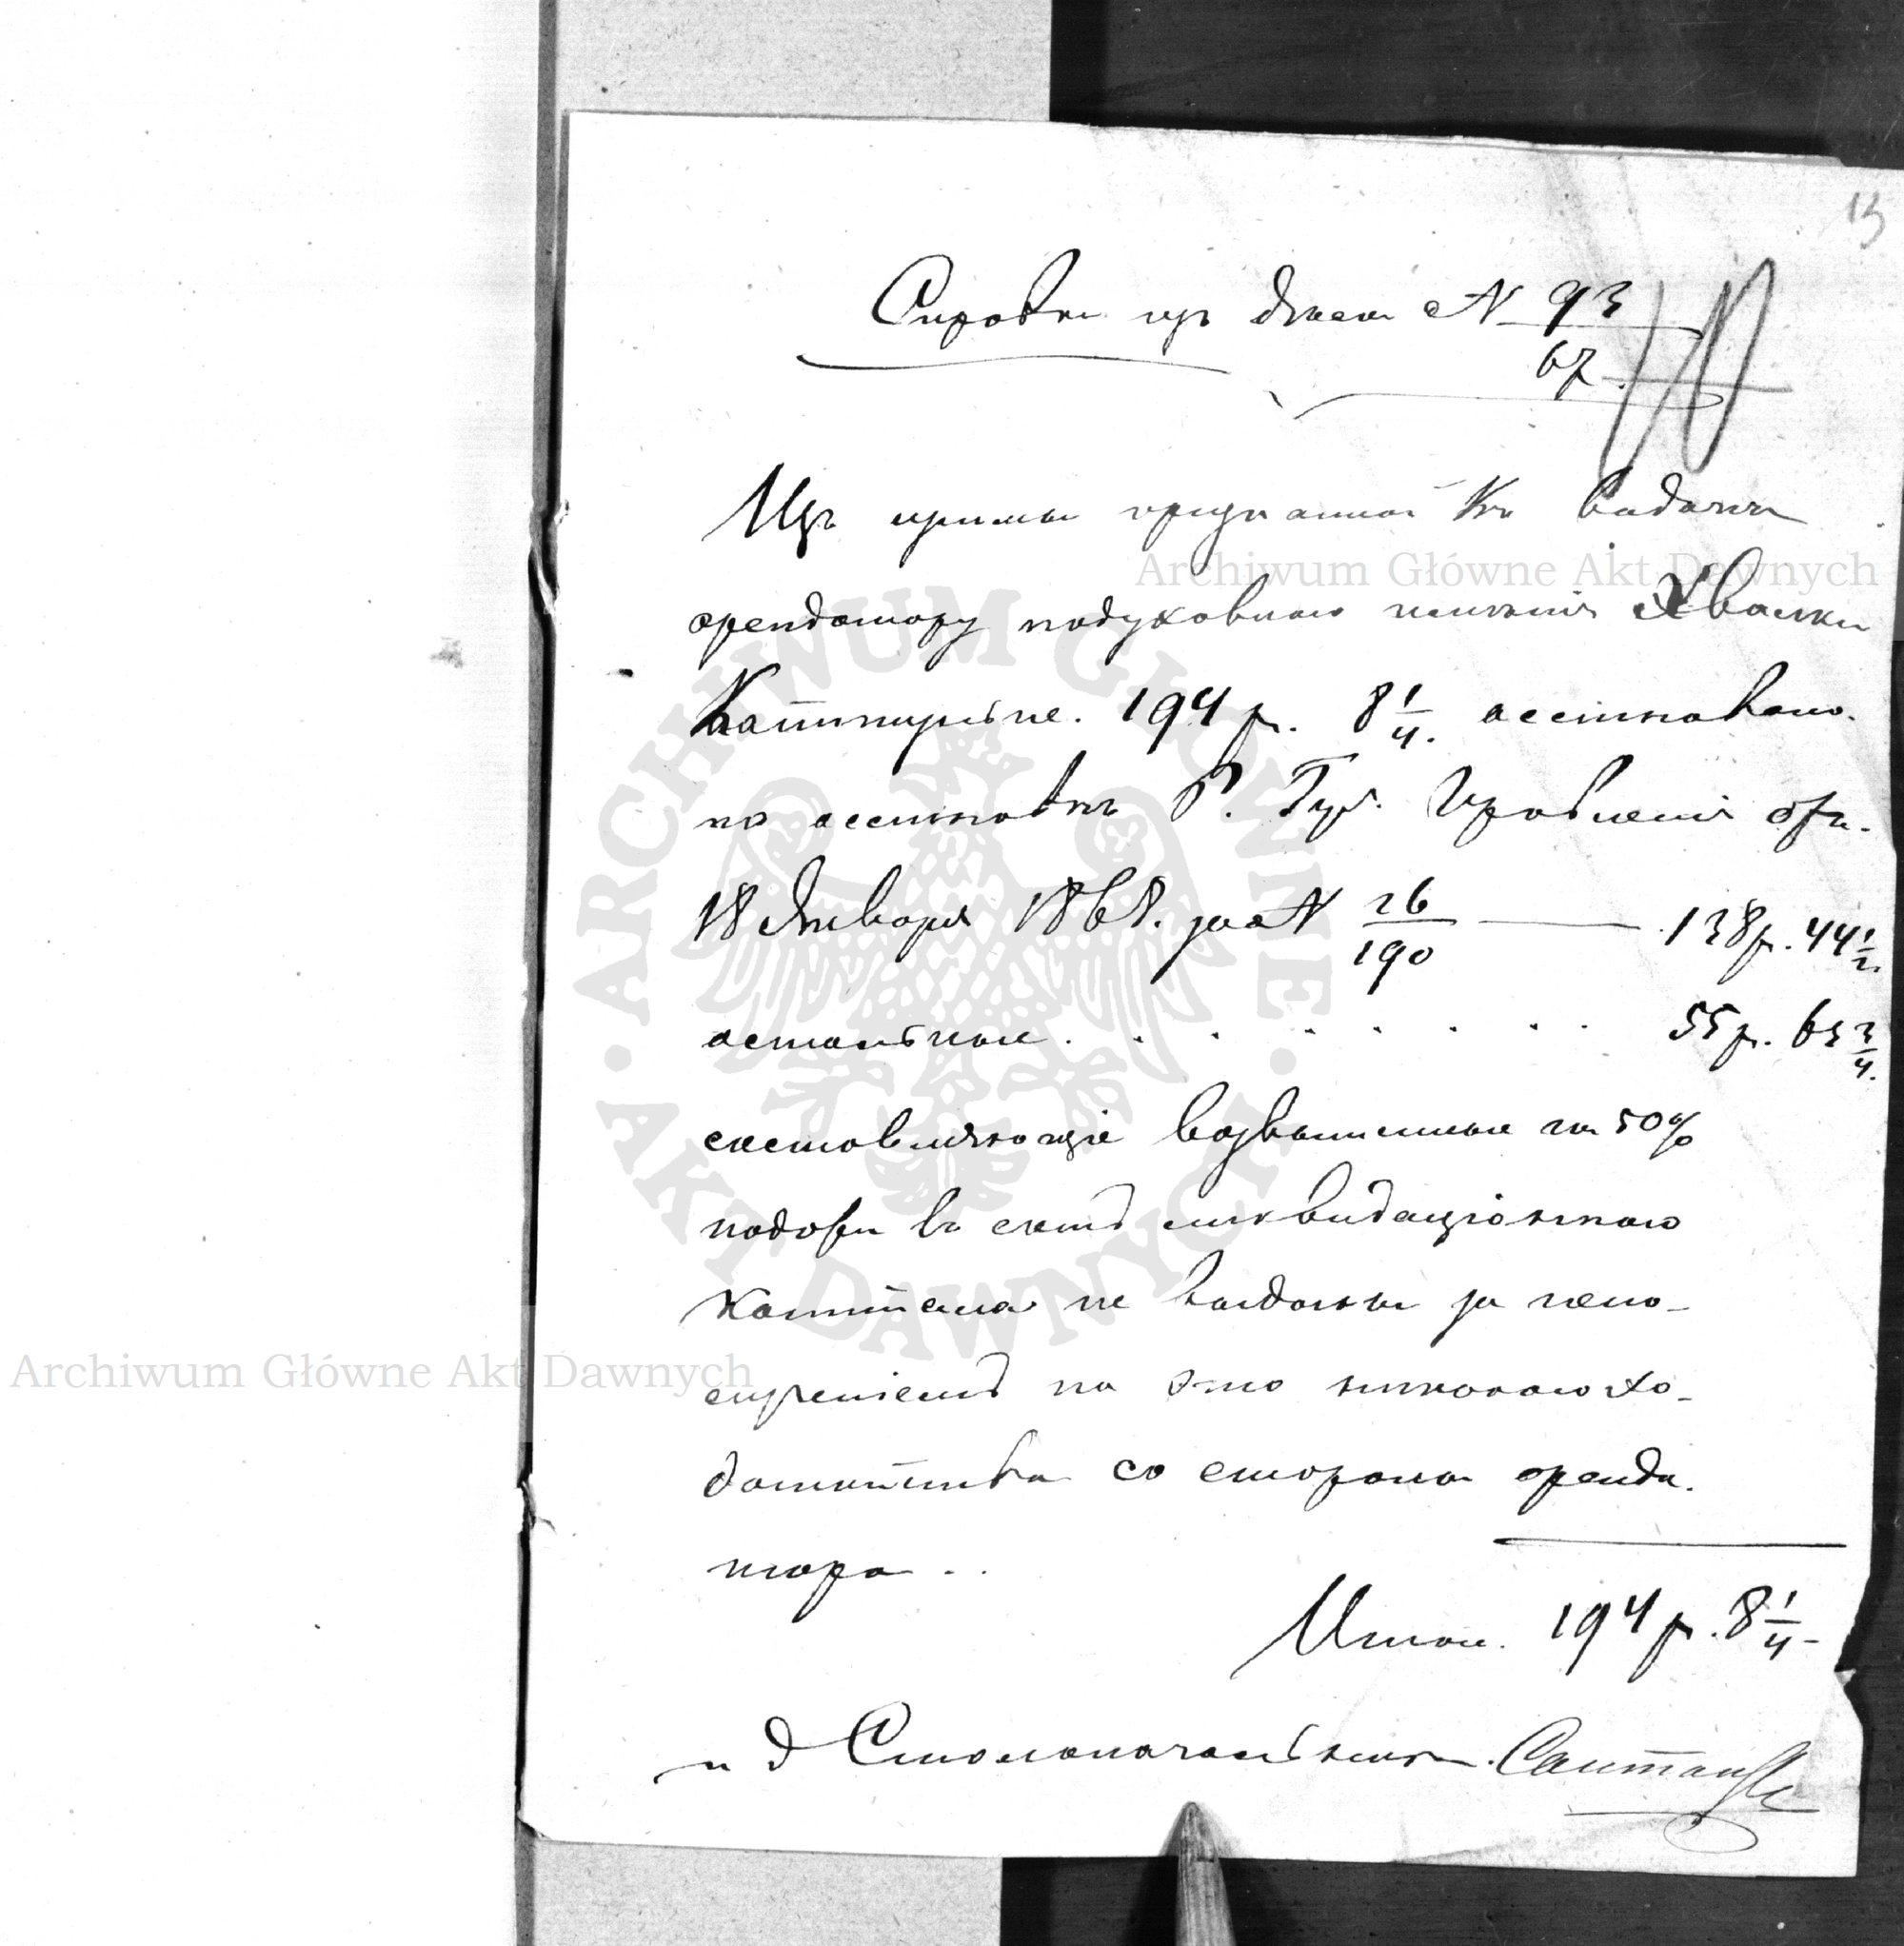 13
Справка изъ дѣла № 93/67.
Изъ суммы признанной къ выдачѣ
арендатору подуховнаго имѣнія Хвалки
194 р. 8 1/4. ассигновано.
по ассигновкѣ Р. Губ. Правленія отъ.
18 Января 1868. за № 26/190 — 138 р. 44 1/2
остальные . . . . . . . . 55 р. 63 3/4.
составляющіе возвышенные на 50%
подати въ счетъ ликвидаціоннаго
капитала не выданы за непо-
ступленіемъ на это никакого хо-
датайства со стороны аренда.
тора ..
Итого. 194 р. 8 1/4 -
и д Столоначальника.
Archiwum Główne Akt Dawnych
Archiwum Główne Akt Dawnych
ARCHIWUM GŁÓWNE AKT DAWNYCH